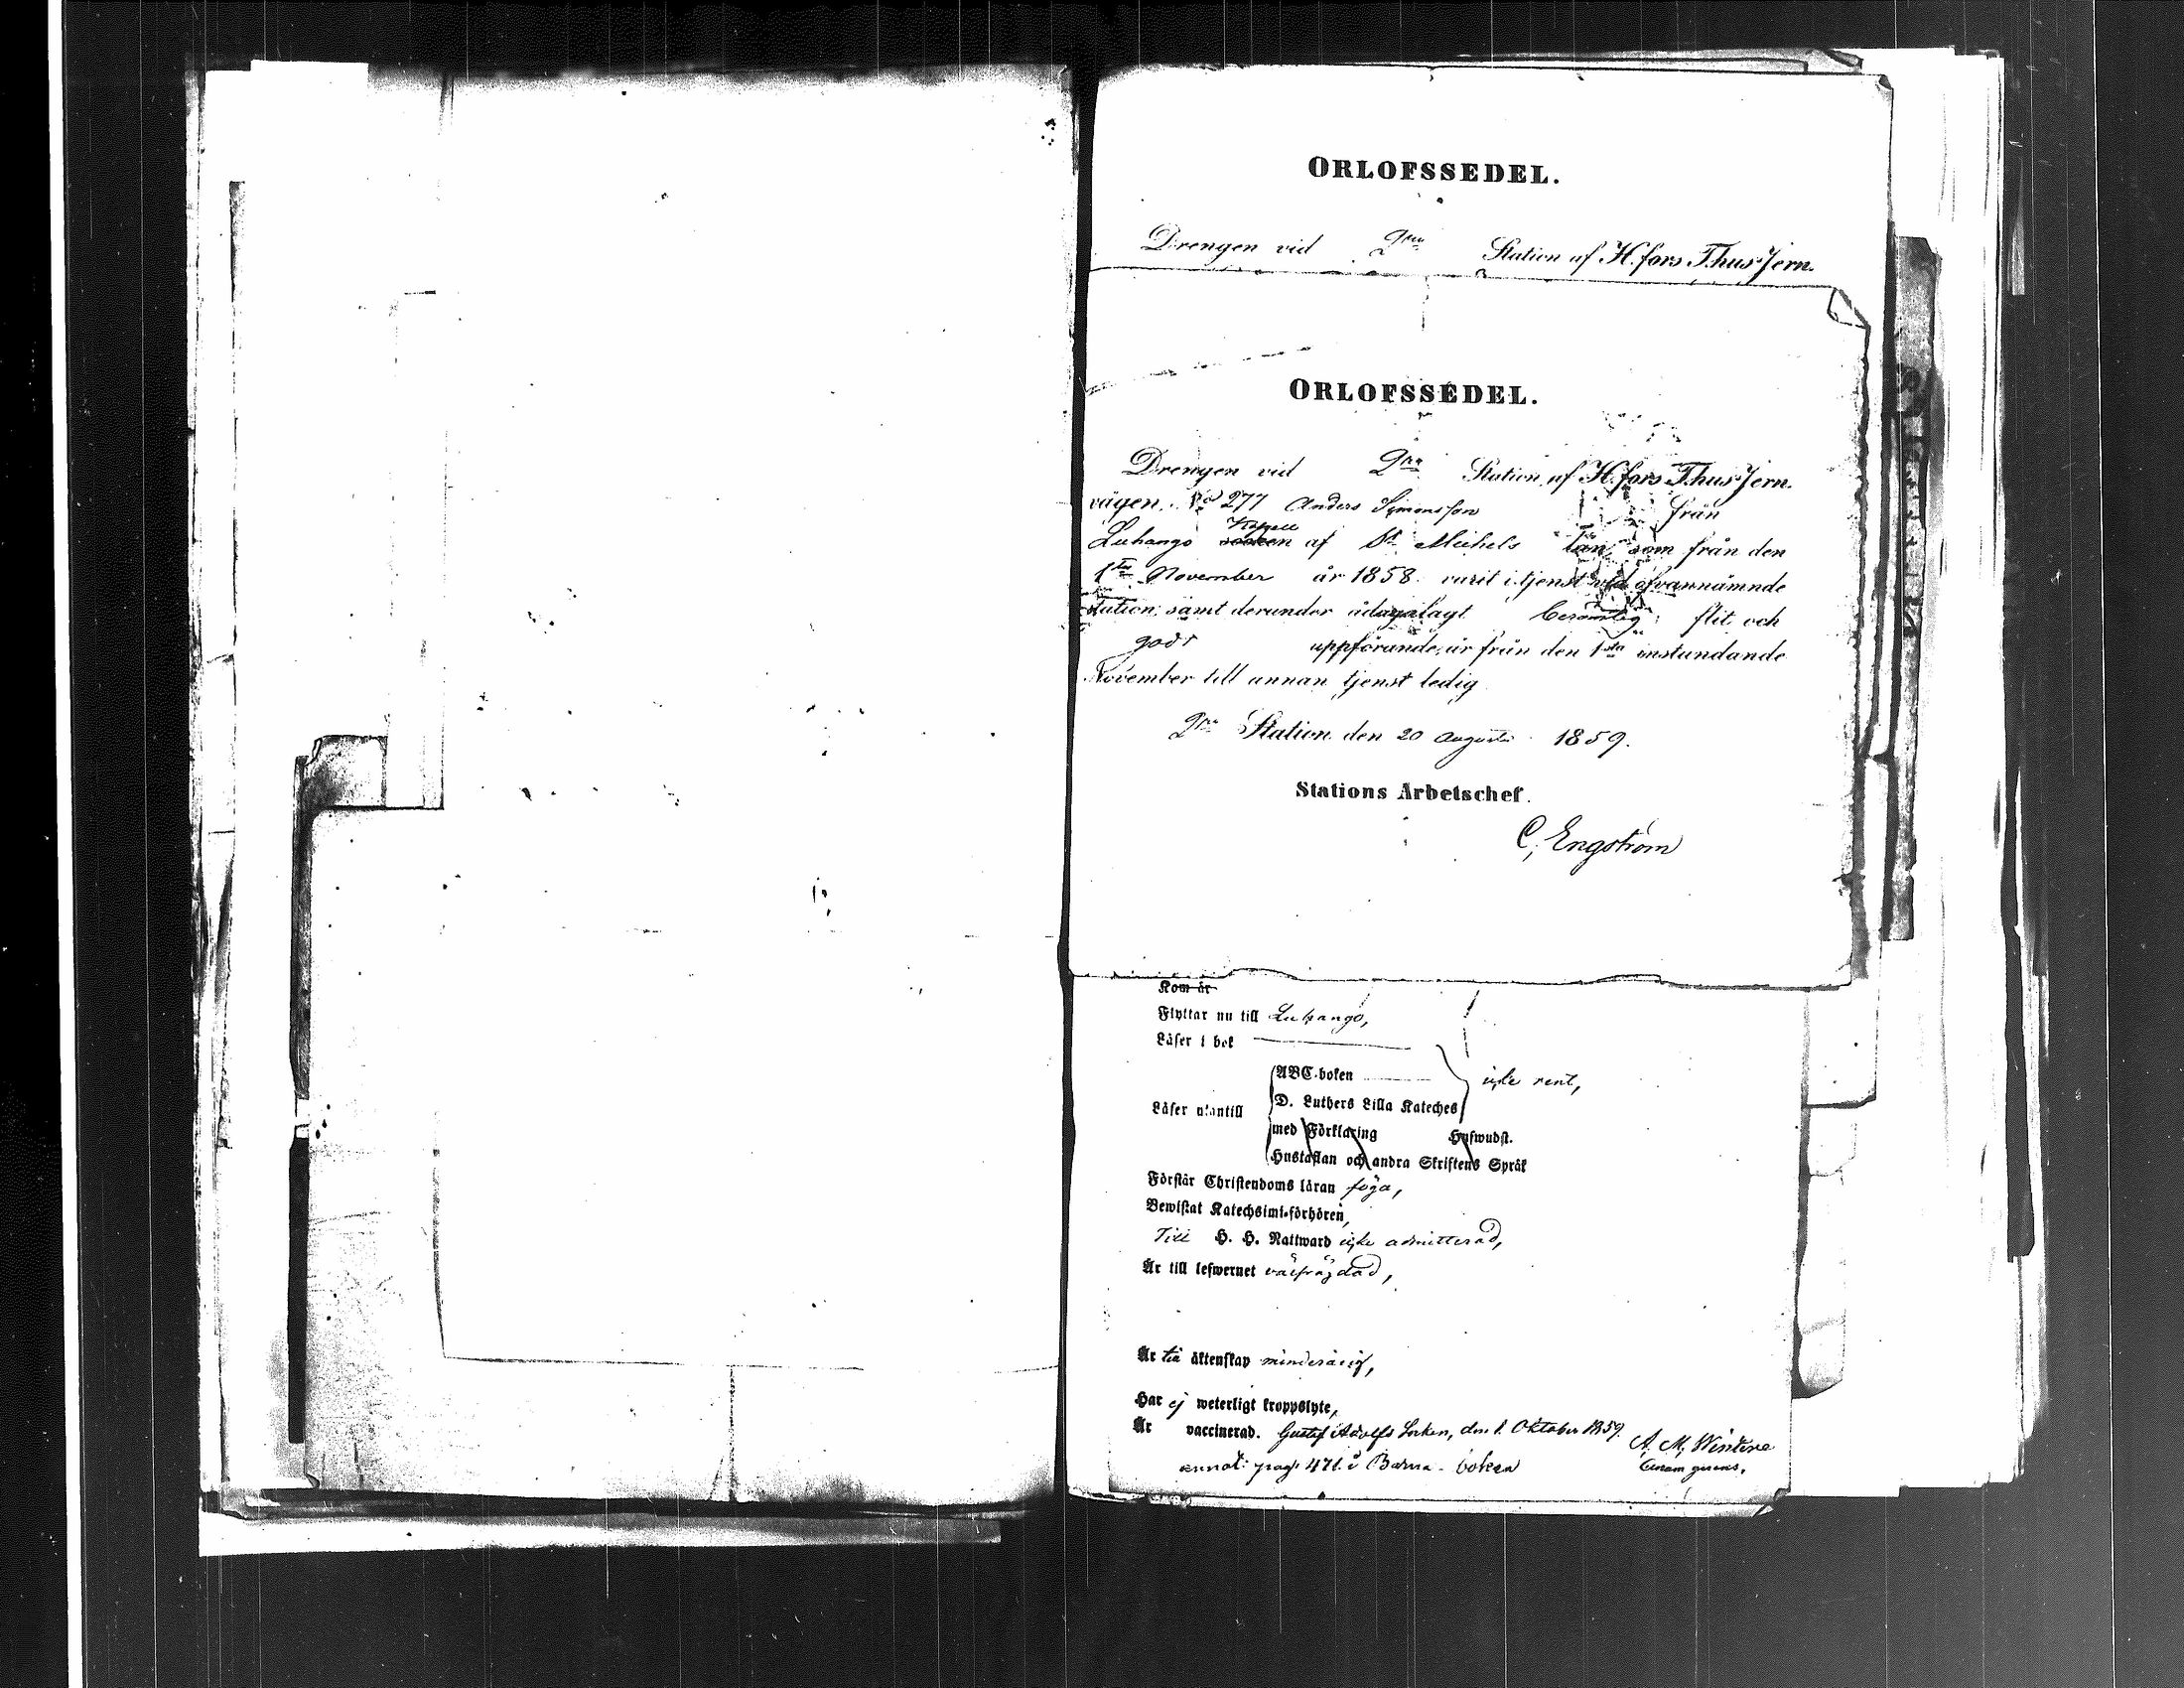 ORLOFSSEDEL.
Drengen vid 2dra Station af H.fors T.hus Jern.
ORLOFSSEDEL.
Drengen vid 2dra Station af H.fors T.hus Jern.
vägen. No 277 Anders Simonsson från
Luhango Kapell socken af St Michels län som från den
1sta November år 1858 varit i tjenst vid ofvannämnde
station, samt derunder ådagalagt berömlig flit och
godt uppförande, är från den 1sta instundande
November till annan tjenst ledig
2dra Station den 20 Augusti 1859.
Stations Arbetschef.
C. Engström
Kom år
Flyttar nu till Luhango,
Läser i bok
ABC-boken
icke rent,
Läser utantill
D. Luthers Lilla Kateches
med Förklaring Huswudst.
Hustaflan och andra Skriftens Språk
Förstår Christendoms läran föga,
Bewistat Katechsimi-förhören,
Till H. H. Nattward icke admitterad,
Är till lefwernet välfrägdad,
Är till äktenskap minderårig,
Har ej weterligt kroppslyte,
Är vaccinerad. Gustaf Adolfs Socken, den 1. Oktober 1859.
A. M. Windene
annot: pag: 471. i Barna-boken